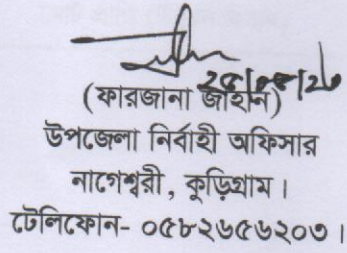 (ফারজানা জাহান)
উপজেলা নির্বাহী অফিসার
নাগেশ্বরী, কুড়িগ্রাম।
টেলিফোন- ০৫৮২৬৫৬২০৩।